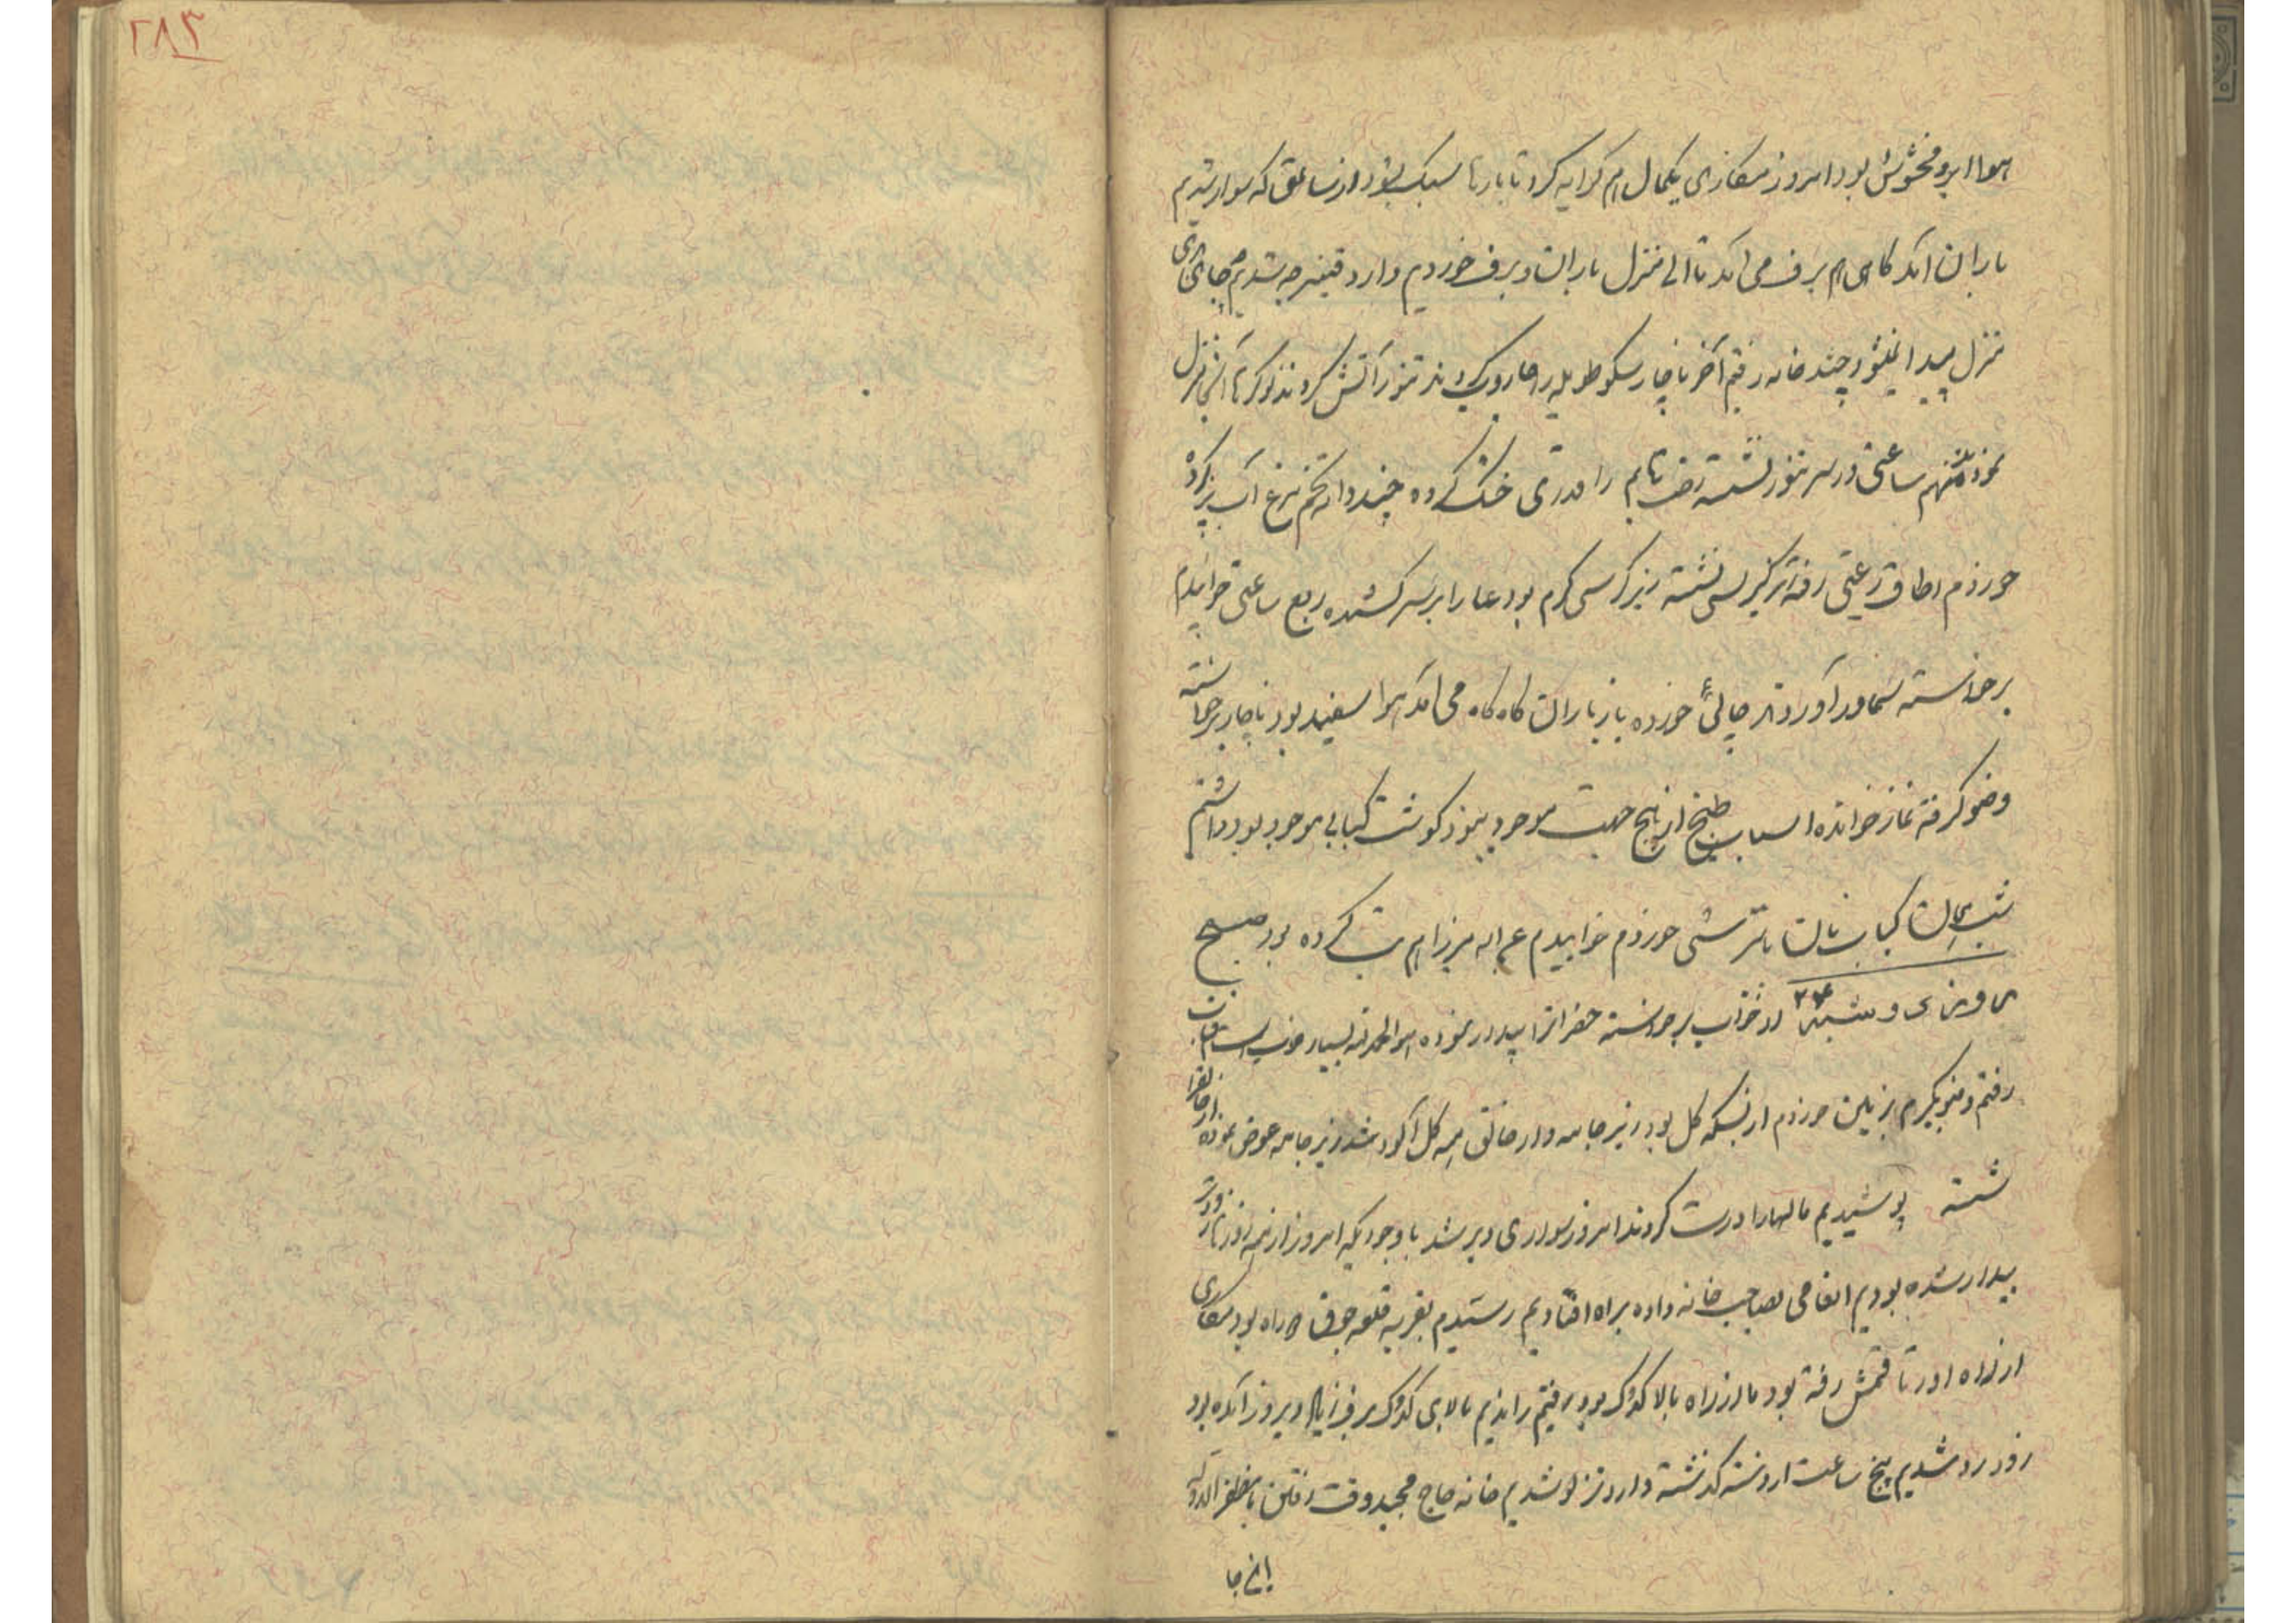 ۲۸۳
هوا ابر و مغشوش بود امروز مکاری یکمال هم کرایه کرد تا بارها سبک بشود از ساعتی که سوار شدیم
باران آمد گاهی هم برف می آمد تا الی منزل باران و برف خوردیم وارد شدیم جای
منزل پیدا نمیشود چند خانه رفتم آخر ناچار سکو طویله را جاروب کردند تنور آتش کردند نوکرها منزل
نمودند منهم ساعتی در سر تنور نشسته را قدری خشک کرده چند دانه تخم مرغ آب پز کرده
خوردم اطاق رعیتی رفته زیر کرسی نشسته زیر کرسی گرم بود عبا را بر سر کشیده ربع ساعتی خوابیدم
برخواسته سماور آوردند چائی خورده باز باران گاه گاه می آمد هوا سفید بود ناچار برخواسته
وضو گرفته نماز خوانده اسباب طبخ از هیچ جهت موجود نبود گوشت کبابی موجود بود داشتم
شب همان کباب نان با ترشی خوردم خوابیدم میرزا هم تب کرده بود صبح
دوشنبه ۲۴ از خواب برخواسته حضرات را بیدار نموده هوا الحمدلله بسیار خوب است
رفتم وضو بگیرم بزمین خوردم از بسکه گل بود زیرجامه و ارخالق همه گل آلود شد زیرجامه عوض نموده ارخالق را
شسته پوشیدیم مالها را درست کردند امروز سواری دیر شد با وجودیکه امروز از همه روزها زودتر
بیدار شده بودیم انعامی بصاحب خانه داده براه افتادیم رسیدم بقریه قلعه جوق سر راه بود مکاری
از راه رفته بود ما از راه بالا گدوک بود رفتیم راندیم بالای گدوک برف زیاد دیروز آمده بود
زود رد شدیم پنج ساعت از دسته گذشته وارد شدیم خانه حاج مجید وقت رفتن با مظفرالدوله
اینجا